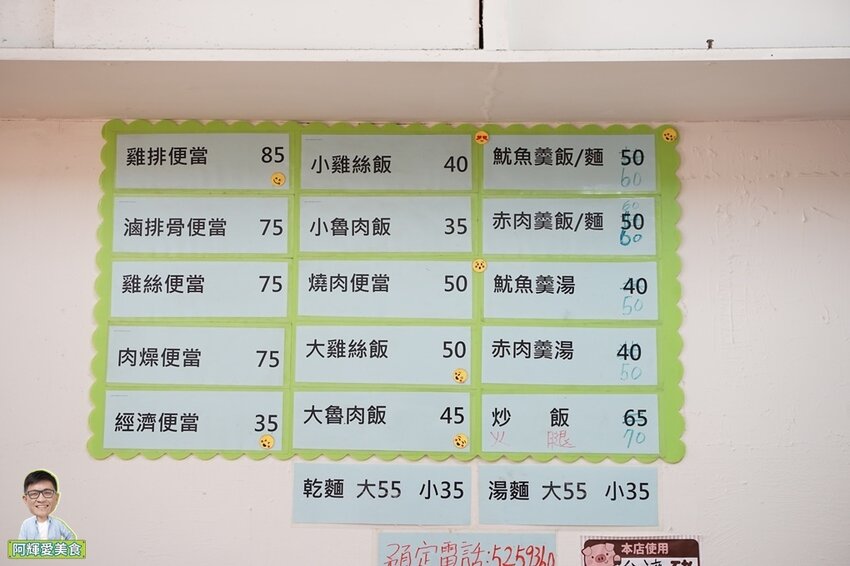 雞排便當 85
滷排骨便當 75
雞絲便當 75
肉燥便當 75
經濟便當 35
小雞絲飯 40
小魯肉飯 35
燒肉便當 50
大雞絲飯 50
大魯肉飯 45
魷魚羹飯/麵 50
60
赤肉羹飯/麵 50
60
魷魚羹湯 40
50
赤肉羹湯 40
50
炒 飯 65
火 腿 70
乾麵 大55 小35
湯麵 大55 小35
預定電話:5259360
本店使用
台灣豬
阿輝愛美食